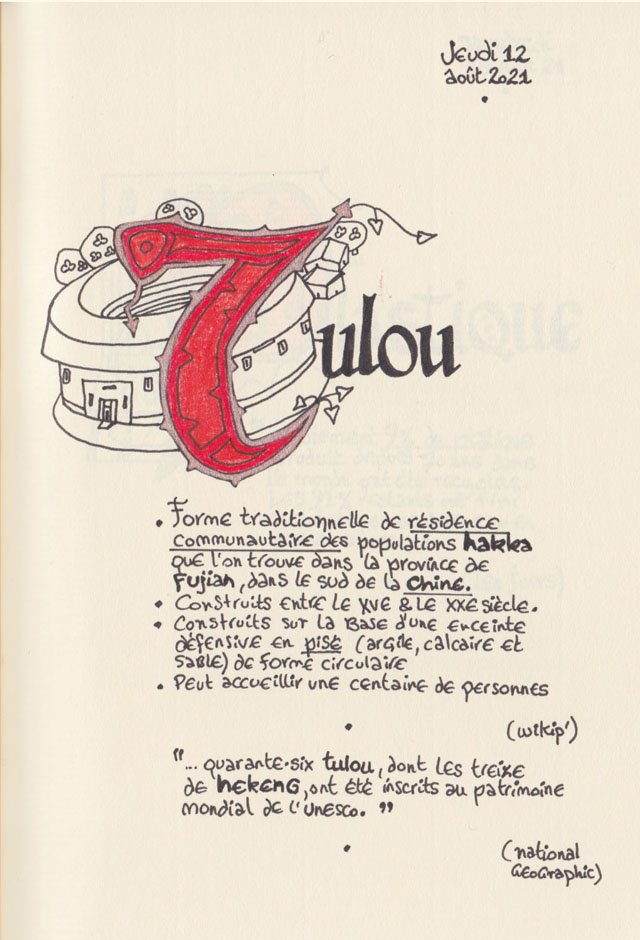 Jeudi 12
août 2021
Tulou
• Forme traditionnelle de résidence
communautaire des populations hakka
que l'on trouve dans la province de
Fujian, dans le sud de la Chine.
• Construits entre le XVe & le XXe siècle.
• Construits sur la base d'une enceinte
défensive en pisé (argile, calcaire et
sable) de forme circulaire
• Peut accueillir une centaine de personnes
(wikip')
"... quarante-six tulou, dont les treize
de hekeng, ont été inscrits au patrimoine
mondial de l'Unesco."
(national
GeoGraphic)